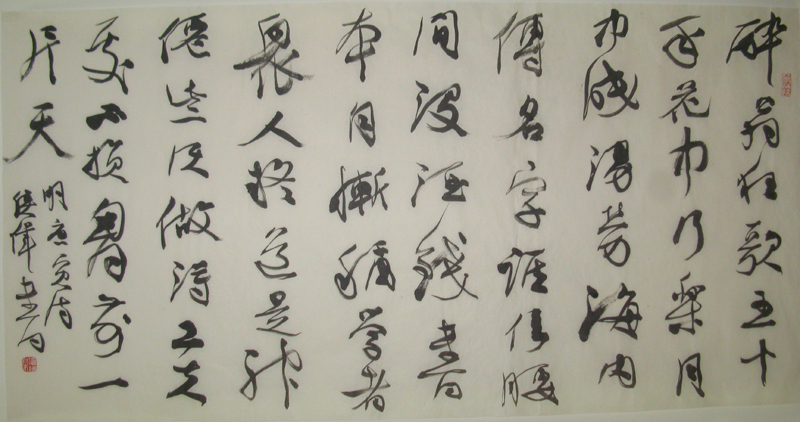 醉舞狂歌五十
年花中行樂月
中眠漫勞海内
傳名字誰信腰
間沒酒錢書
本自慚稱學者
眾人疑道是神
僊些須做得工夫
處不損胸前一
片天
明唐寅詩
偉書